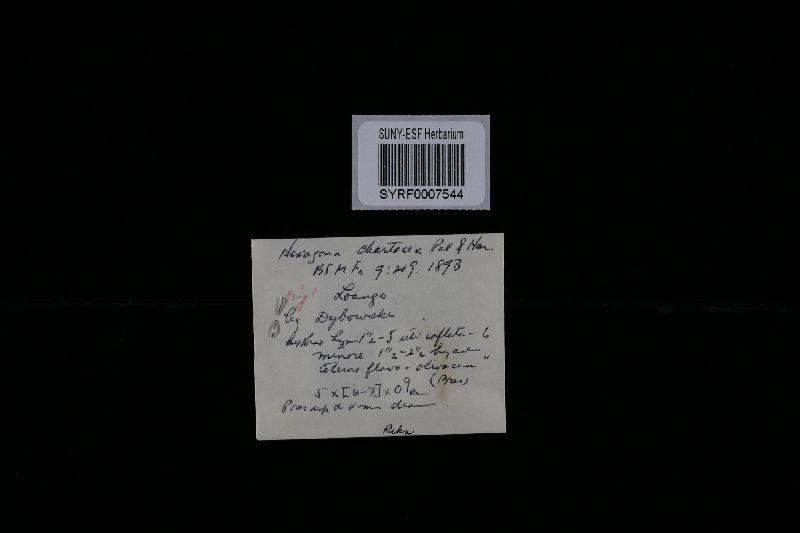 SUNY-ESF Herbarium
SYRF0007544
Hexagona chartacea Pat & Har.
BSMFr 9:209. 1893
orig!
Loango
leg Dybowski
hyphae hym 1½-5 ubi inflata - 6
minore 1½-2½
flavo-olivacea "
5 x [6-7] x 0.9 cm (Bres)
Pores up to mm diam